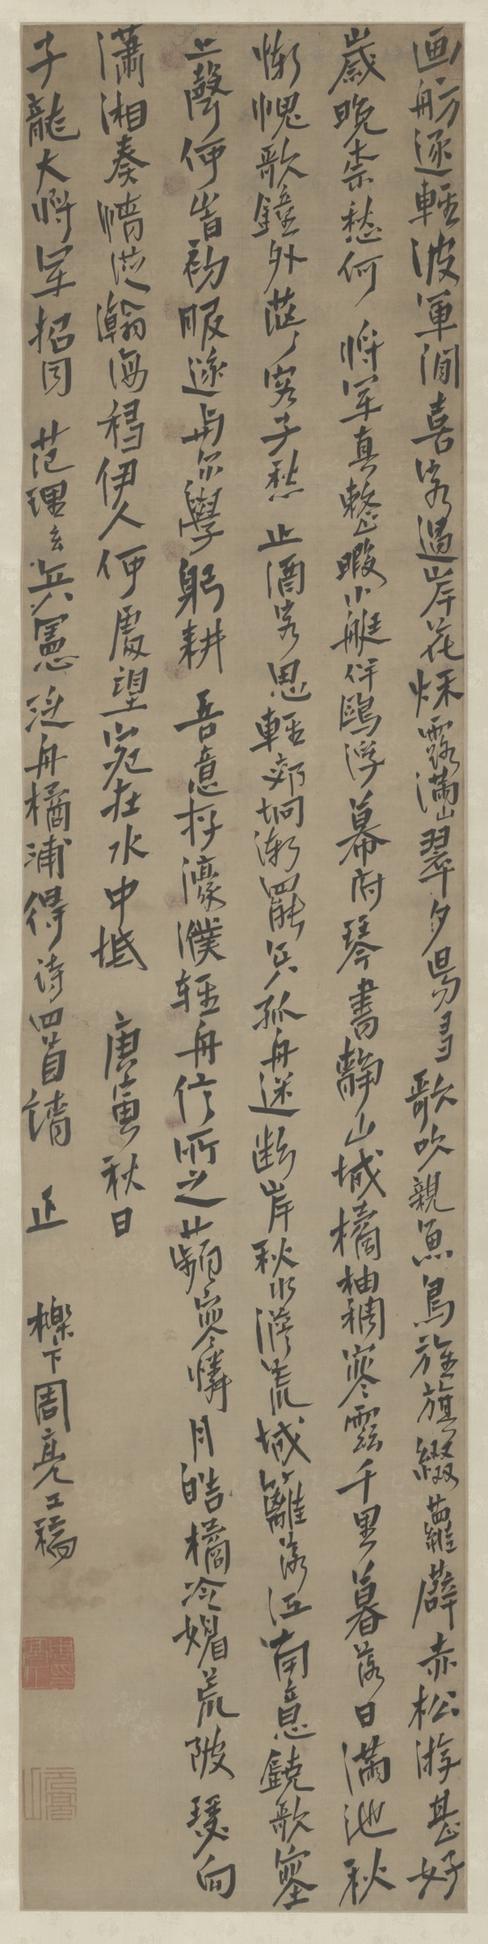 画舫逐輕波軍閒喜客過岸花烁露滿山翠夕易多歌吹親魚鳥旌旗綴蘿薜赤松游甚好
歲晚柰愁何將軍真整暇小艇伴鷗浮幕府琴書靜山城橘柚稠寒雲千里暮落日滿池秋
慚愧歌鐘外茫々客子愁止酒客思輕郊坰漸罷兵孤舟迷斷岸秋水滂荒城籬落江南意鐃歌塞
上聲何當初服遂與尔學躬耕吾意存濠濮輕舟信所之蘋寒憐月皓橘冷媚荒陂瑟向
瀟湘奏情從瀚海移伊人何處望宛在水中坻庚寅秋日
子龍大將軍招同范理玄兵憲泛舟橘浦得詩四首請正櫟下周亮工稿